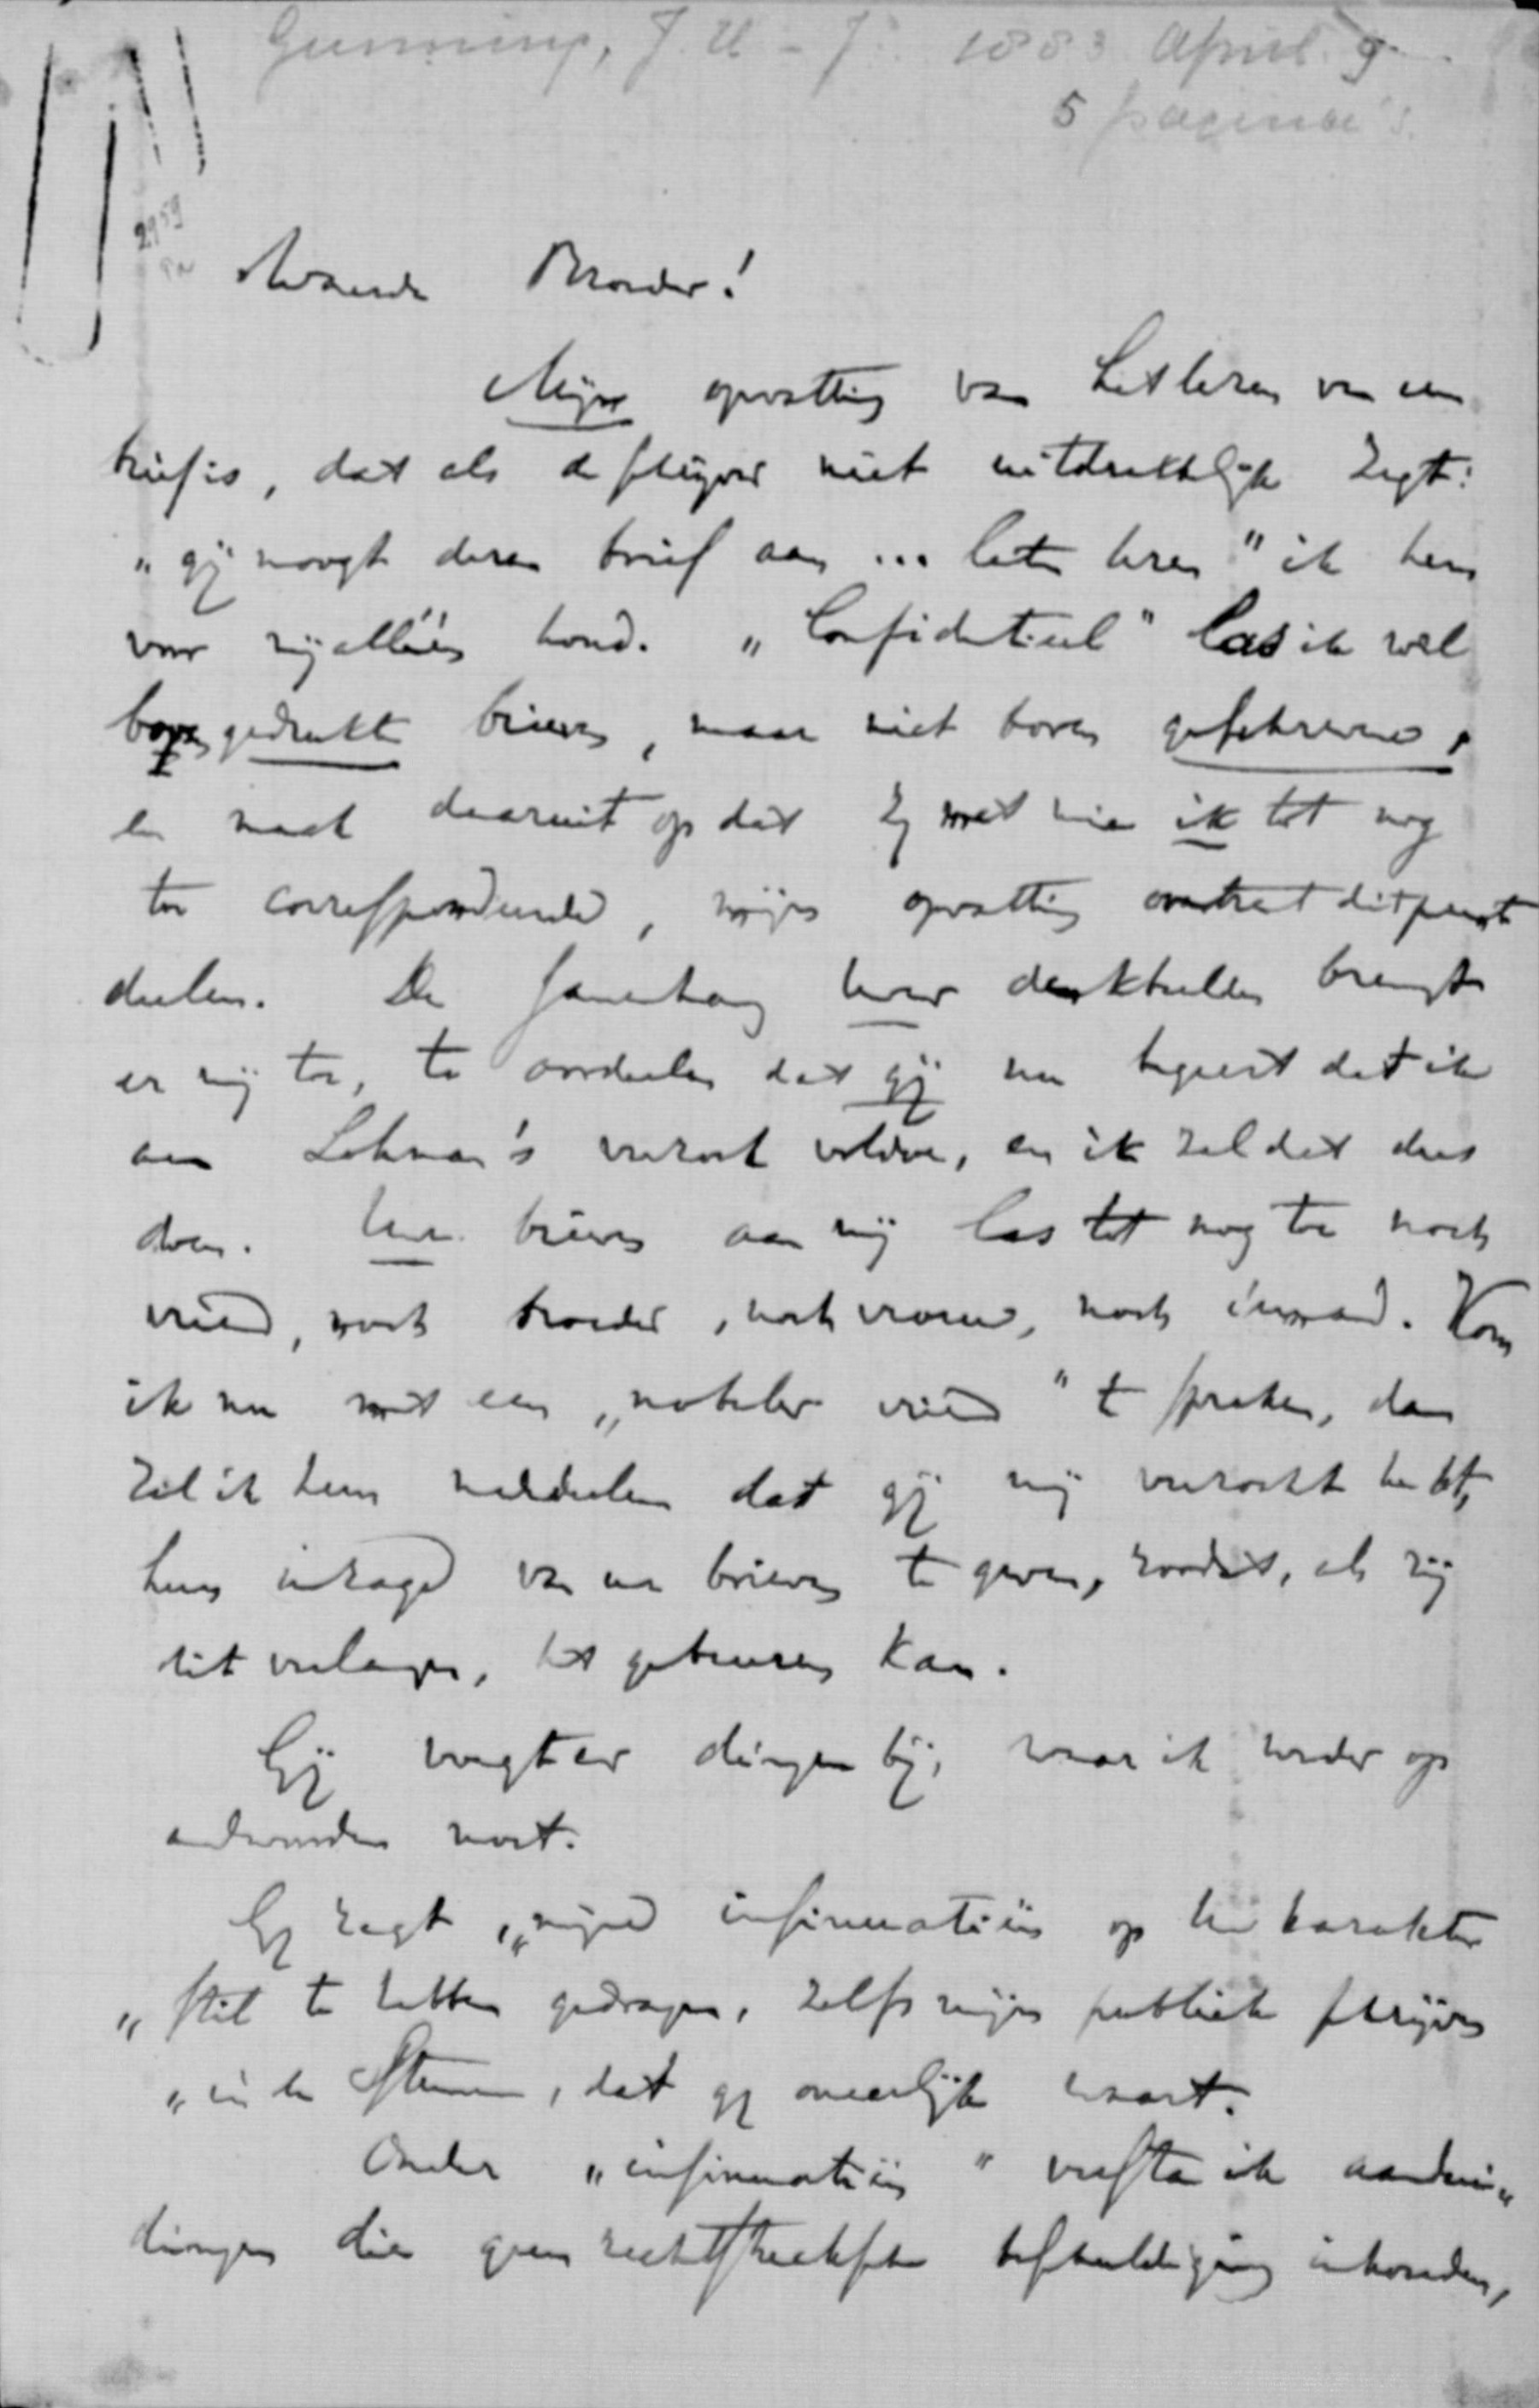 Gunning, J. H. - Jr. 1883 April 9.
5 pagina's.
2959
Waarde Broeder!
Mijne opvatting van het lezen van een
brief is, dat als de schrijver niet uitdrukkelijk zegt:
„gij moogt dezen brief aan ... laten lezen" ik hem
voor mij alléén houd. „Confidentieel" las ik wel
boven gedrukte brieven, maar niet boven geschrevene,
en maak daaruit op dat zij met wie ik tot nog
toe correspondeerde, mijne opvatting omtrent dit punt
deelen. De samenhang uwer denkbeelden brengt
er mij toe, te oordeelen dat gij nu begeert dat ik
aan Lohman's verzoek voldoe, en ik zal dat dus
doen. Uwe brieven aan mij las tot nog toe noch
vriend, noch broeder, noch vrouw, noch iemand. Kom
ik nu met een „nobeler vriend" te spreken, dan
zal ik hem mededeelen dat gij mij verzocht hebt,
hem inzage van uwe brieven te geven, zoodat, als zij
dit verlangen, het gebeuren kan.
Gij voegt er dingen bij, waar ik nader op
antwoorden moet.
Gij zegt, „mijne insinuatiën op uw karakter
„stil te hebben gedragen, zelfs mijn publiek schrijven
„in de Stemmen, dat gij oneerlijk waart.
Onder „insinuatiën" versta ik aandui„
dingen die geen rechtstreeksche beschuldiging inhouden,